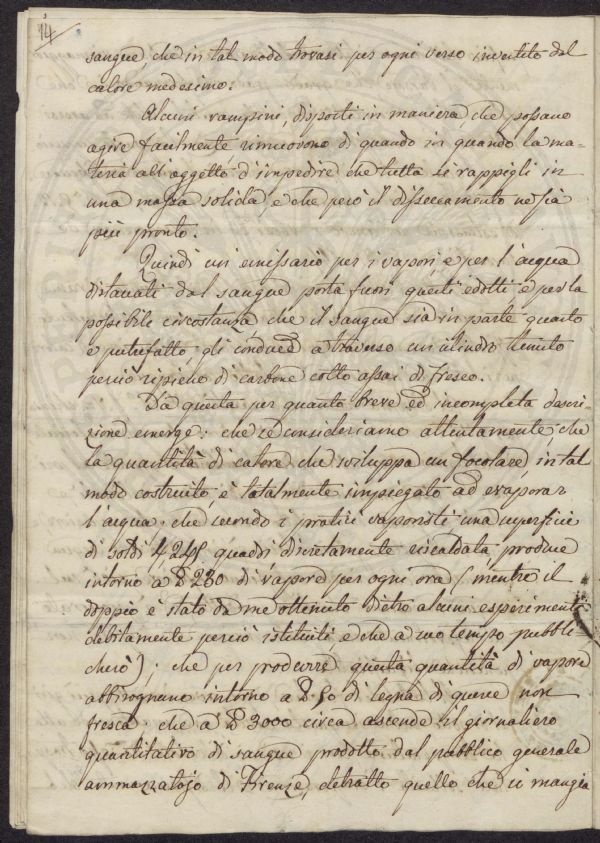 14
sangue, che in tal modo trovasi per ogni verso investito dal
calore medesimo.
Alcuni rampini, disposti in maniera, che possano
agire facilmente, rimuovono di quando in quando la ma-
teria all'oggetto d'impedire che tutta si rappigli in
una massa solida, e che però il disseccamento ne sia
più pronto.
Quindi un'emissario per i vapori, e per l'acqua
distaccati dal sangue porta fuori questi edotti, e per la
possibile circostanza che il sangue sia in parte guasto
e putrefatto, gli conduce a traverso un cilindro tenuto
perciò ripieno di carbone cotto assai di fresco.
Da questa per quanto breve ed incompleta descri-
zione emerge: che se consideriamo attentamente, che
la quantità di calore che sviluppa un focolare, in tal
modo costruito, è totalmente impiegato ad evaporar
l'acqua: che secondo i pratici vaporisti una superficie
di soldi 424 quadri discretamente riscaldata, produce
intorno a ℔ 280 di vapore per ogni ora (mentre il
doppio è stato da me ottenuto dietro alcuni esperimenti
debitamente perciò istituiti, e che a suo tempo pubbli-
cherò); che per produrre questa quantità di vapore
abbisognano intorno a ℔ 50 di legna di querce non
fresca: che a ℔ 3000 circa ascende il giornaliero
quantitativo di sangue prodotto dal pubblico generale
ammazzatojo di Firenze, detratto quello che si mangia